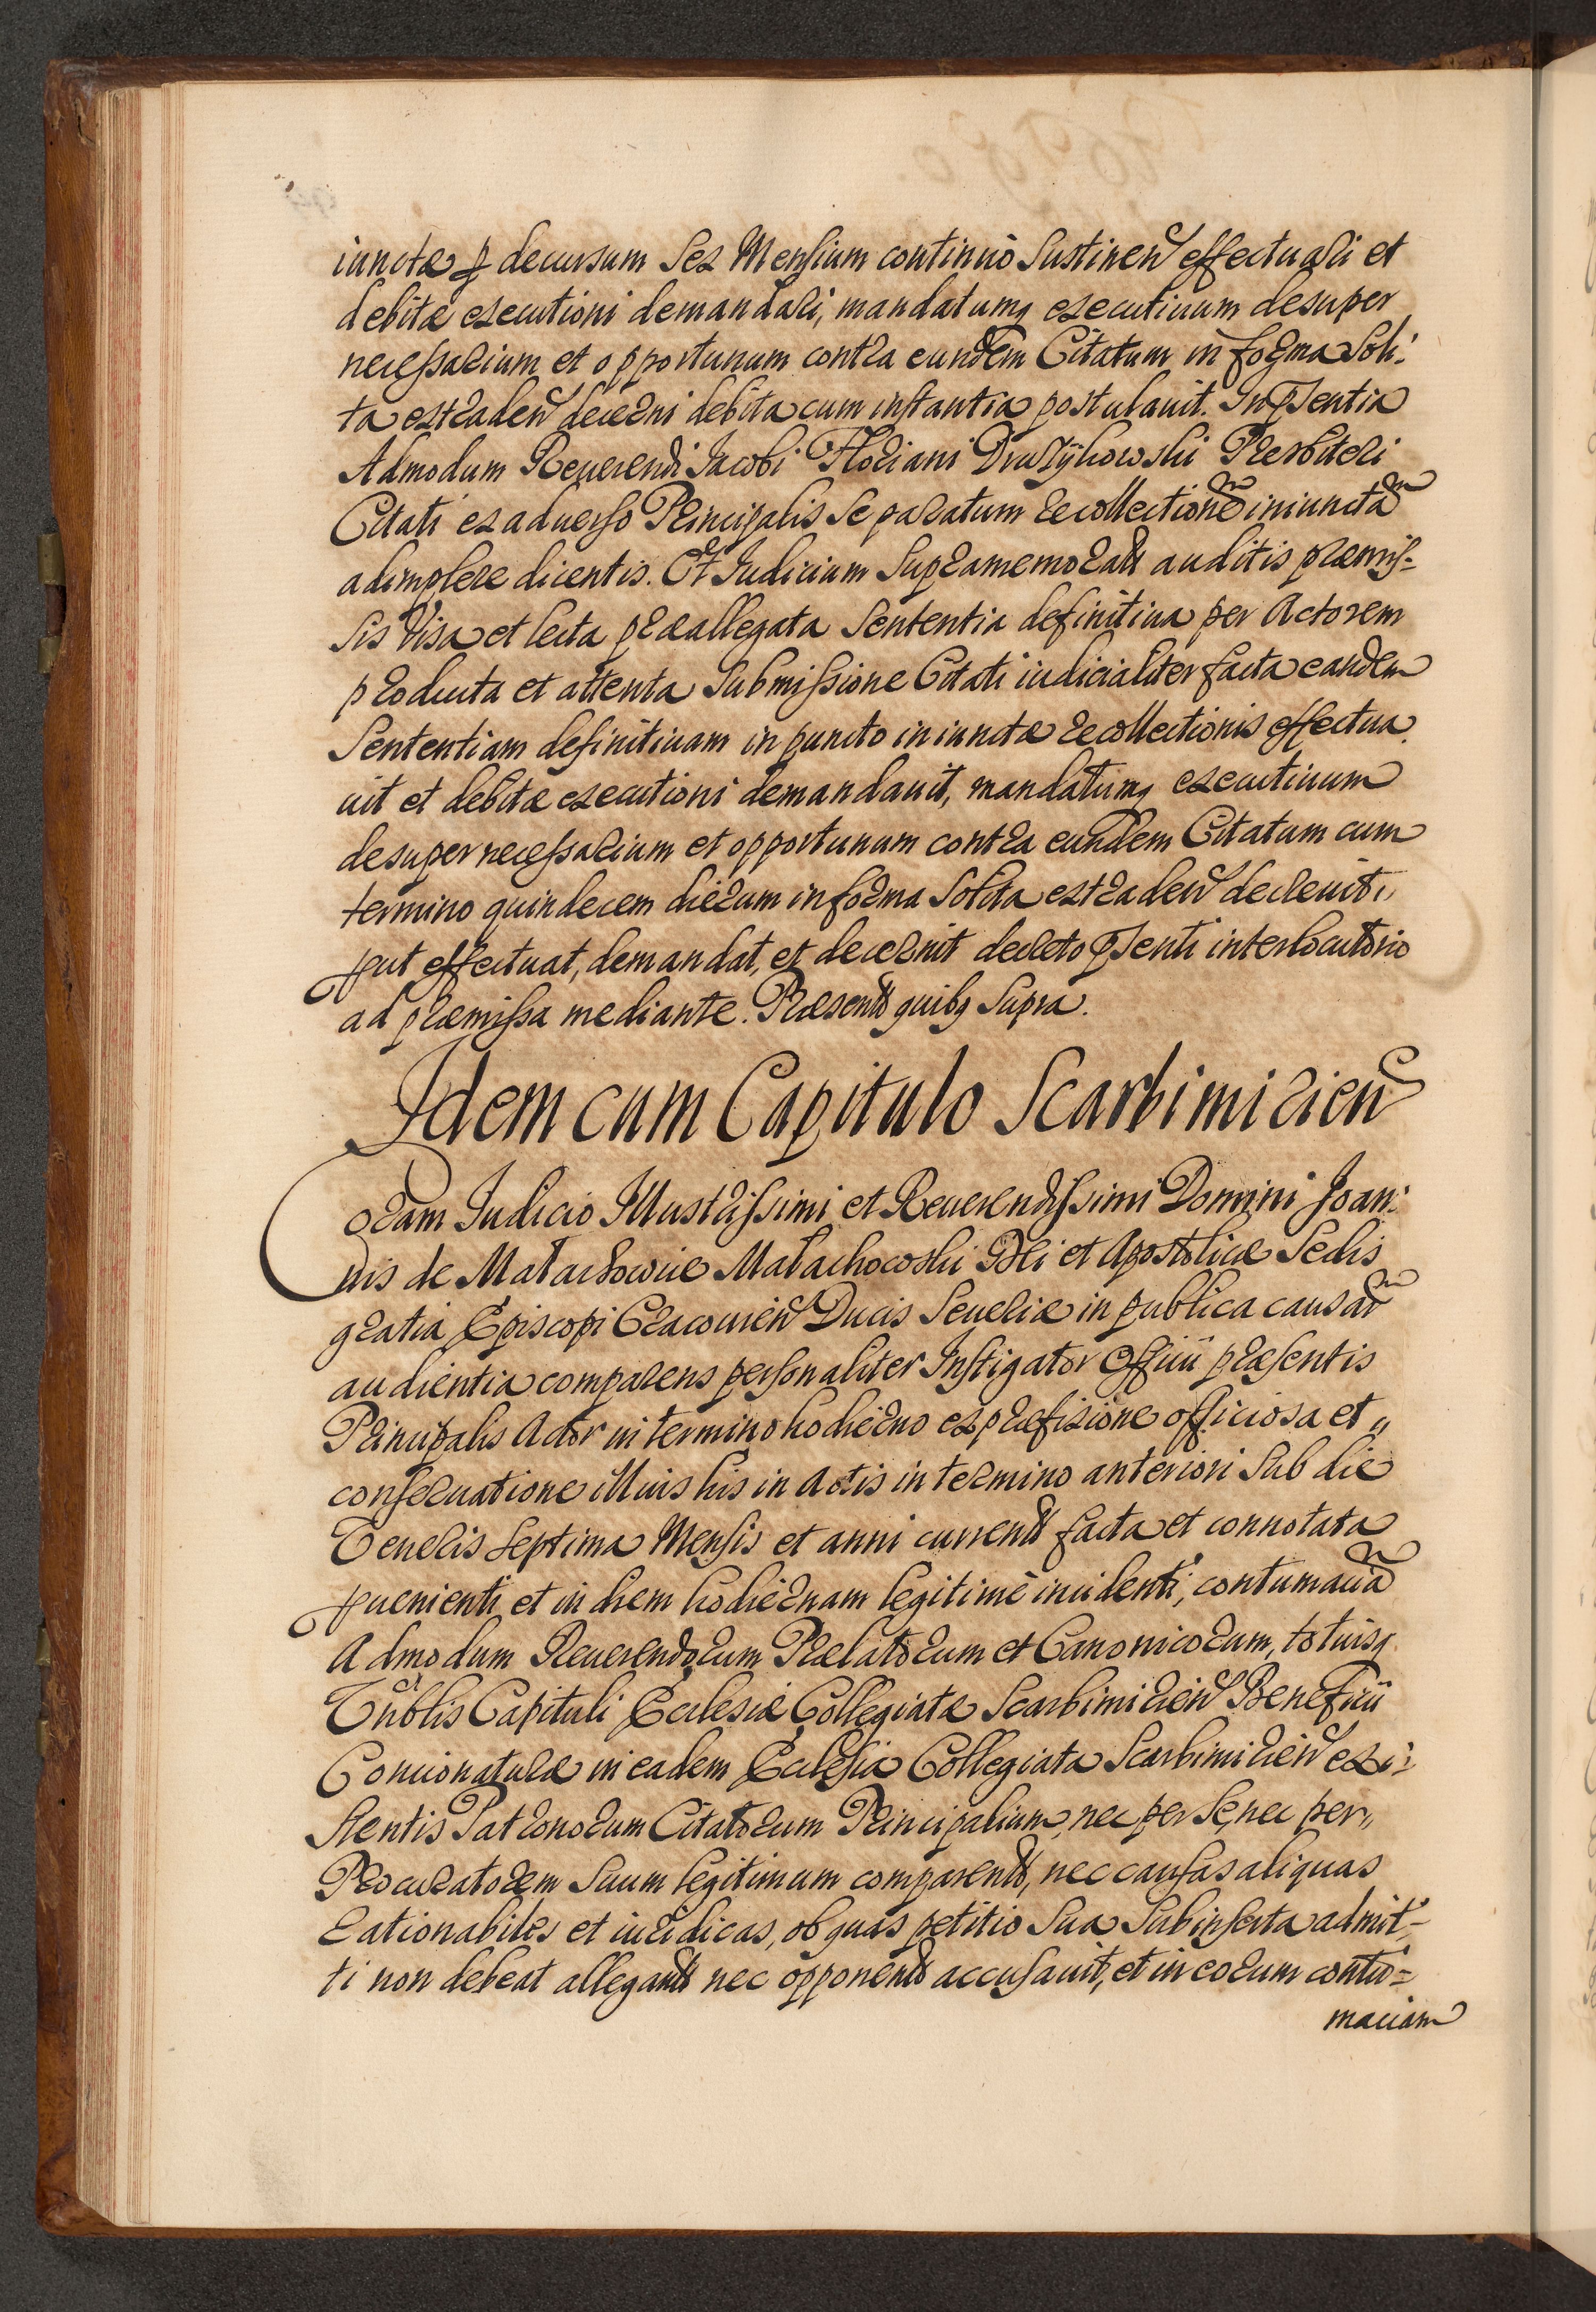 iunctæ p decursum Sex Mensium continuò Sustinen effectuari et
debitæ executioni demandari, mandatumq executiuum desuper
necessarium et opportunum contra eundem Citatum in forma Soli-
ta extraden decerni debita cum instantia postulauit. In pñtia
Admodum Reuerendi Jacobi Floriani Drużÿkowski Presbiteri
Citati ex aduerso Principalis Se paratum recollectionẽ iniunctã
adimplere dicentis. Et Iudicium Supramemorat auditis præmis=
sis Visa et lecta præallegata Sententia definitiua per Actorem
producta et attenta Submissione Citati iudicialiter facta eandem
Sententiam definitiuam in puncto iniunctæ recollectionis effectua
uit et debitæ executioni demandauit, mandatumq executiuum
desuper necessarium et opportunum contra eundem Citatum cum
termino quindecem dierum in forma Solita extraden decreuit,,
put effectuat, demandat, et decernit decreto pñti interlocutorio
ad præmissa mediante. Præsent quibq Supra.
Idem cum Capitulo Scarbimirien
Coram Iudicio Illustrissimi et Reuerendissimi Domini Joan:
nis de Małachowice Małachowski Dei et Apostolicæ Sedis
gratia Episcopi Cracouien Ducis Seueriæ in publica causar
audientia comparens personaliter Instigator Officii præsentis
Principalis Actor in termino hodierno ex præfixione officiosa et,,
conseruatione illius his in Actis in termino anteriori Sub die
Veneris Septima Mensis et anni current facta et connotata
puenienti et in diem hodiernam legitimè incidenti, contumaciã
Admodum Reuerendorum Prælatorum et Canonicorum, totiusq
Vnblis Capituli Ecclesiæ Collegiatæ Scarbimirien Beneficii
Concionaturæ in eadem Ecclesia Collegiata Scarbimirien exi:
stentis Patronorum Citatorum Principalium, nec per Se, nec per,,
Procuratorem Suum legitimum comparent, nec causas aliquas
rationabiles et iuridicas, ob quas petitio Sua Subinserta admit-
ti non debeat allegant nec opponent accusauit, et in eorum contu=
maciam